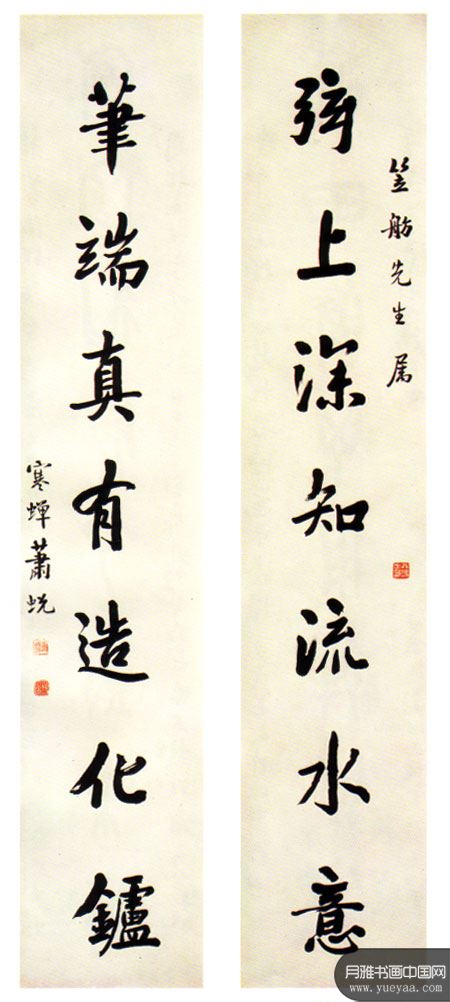 笠舫先生属
弦上深知流水意
筆端真有造化鑪
寒蟬蕭蜕
月雅书画中国网
www.yueyaa.com